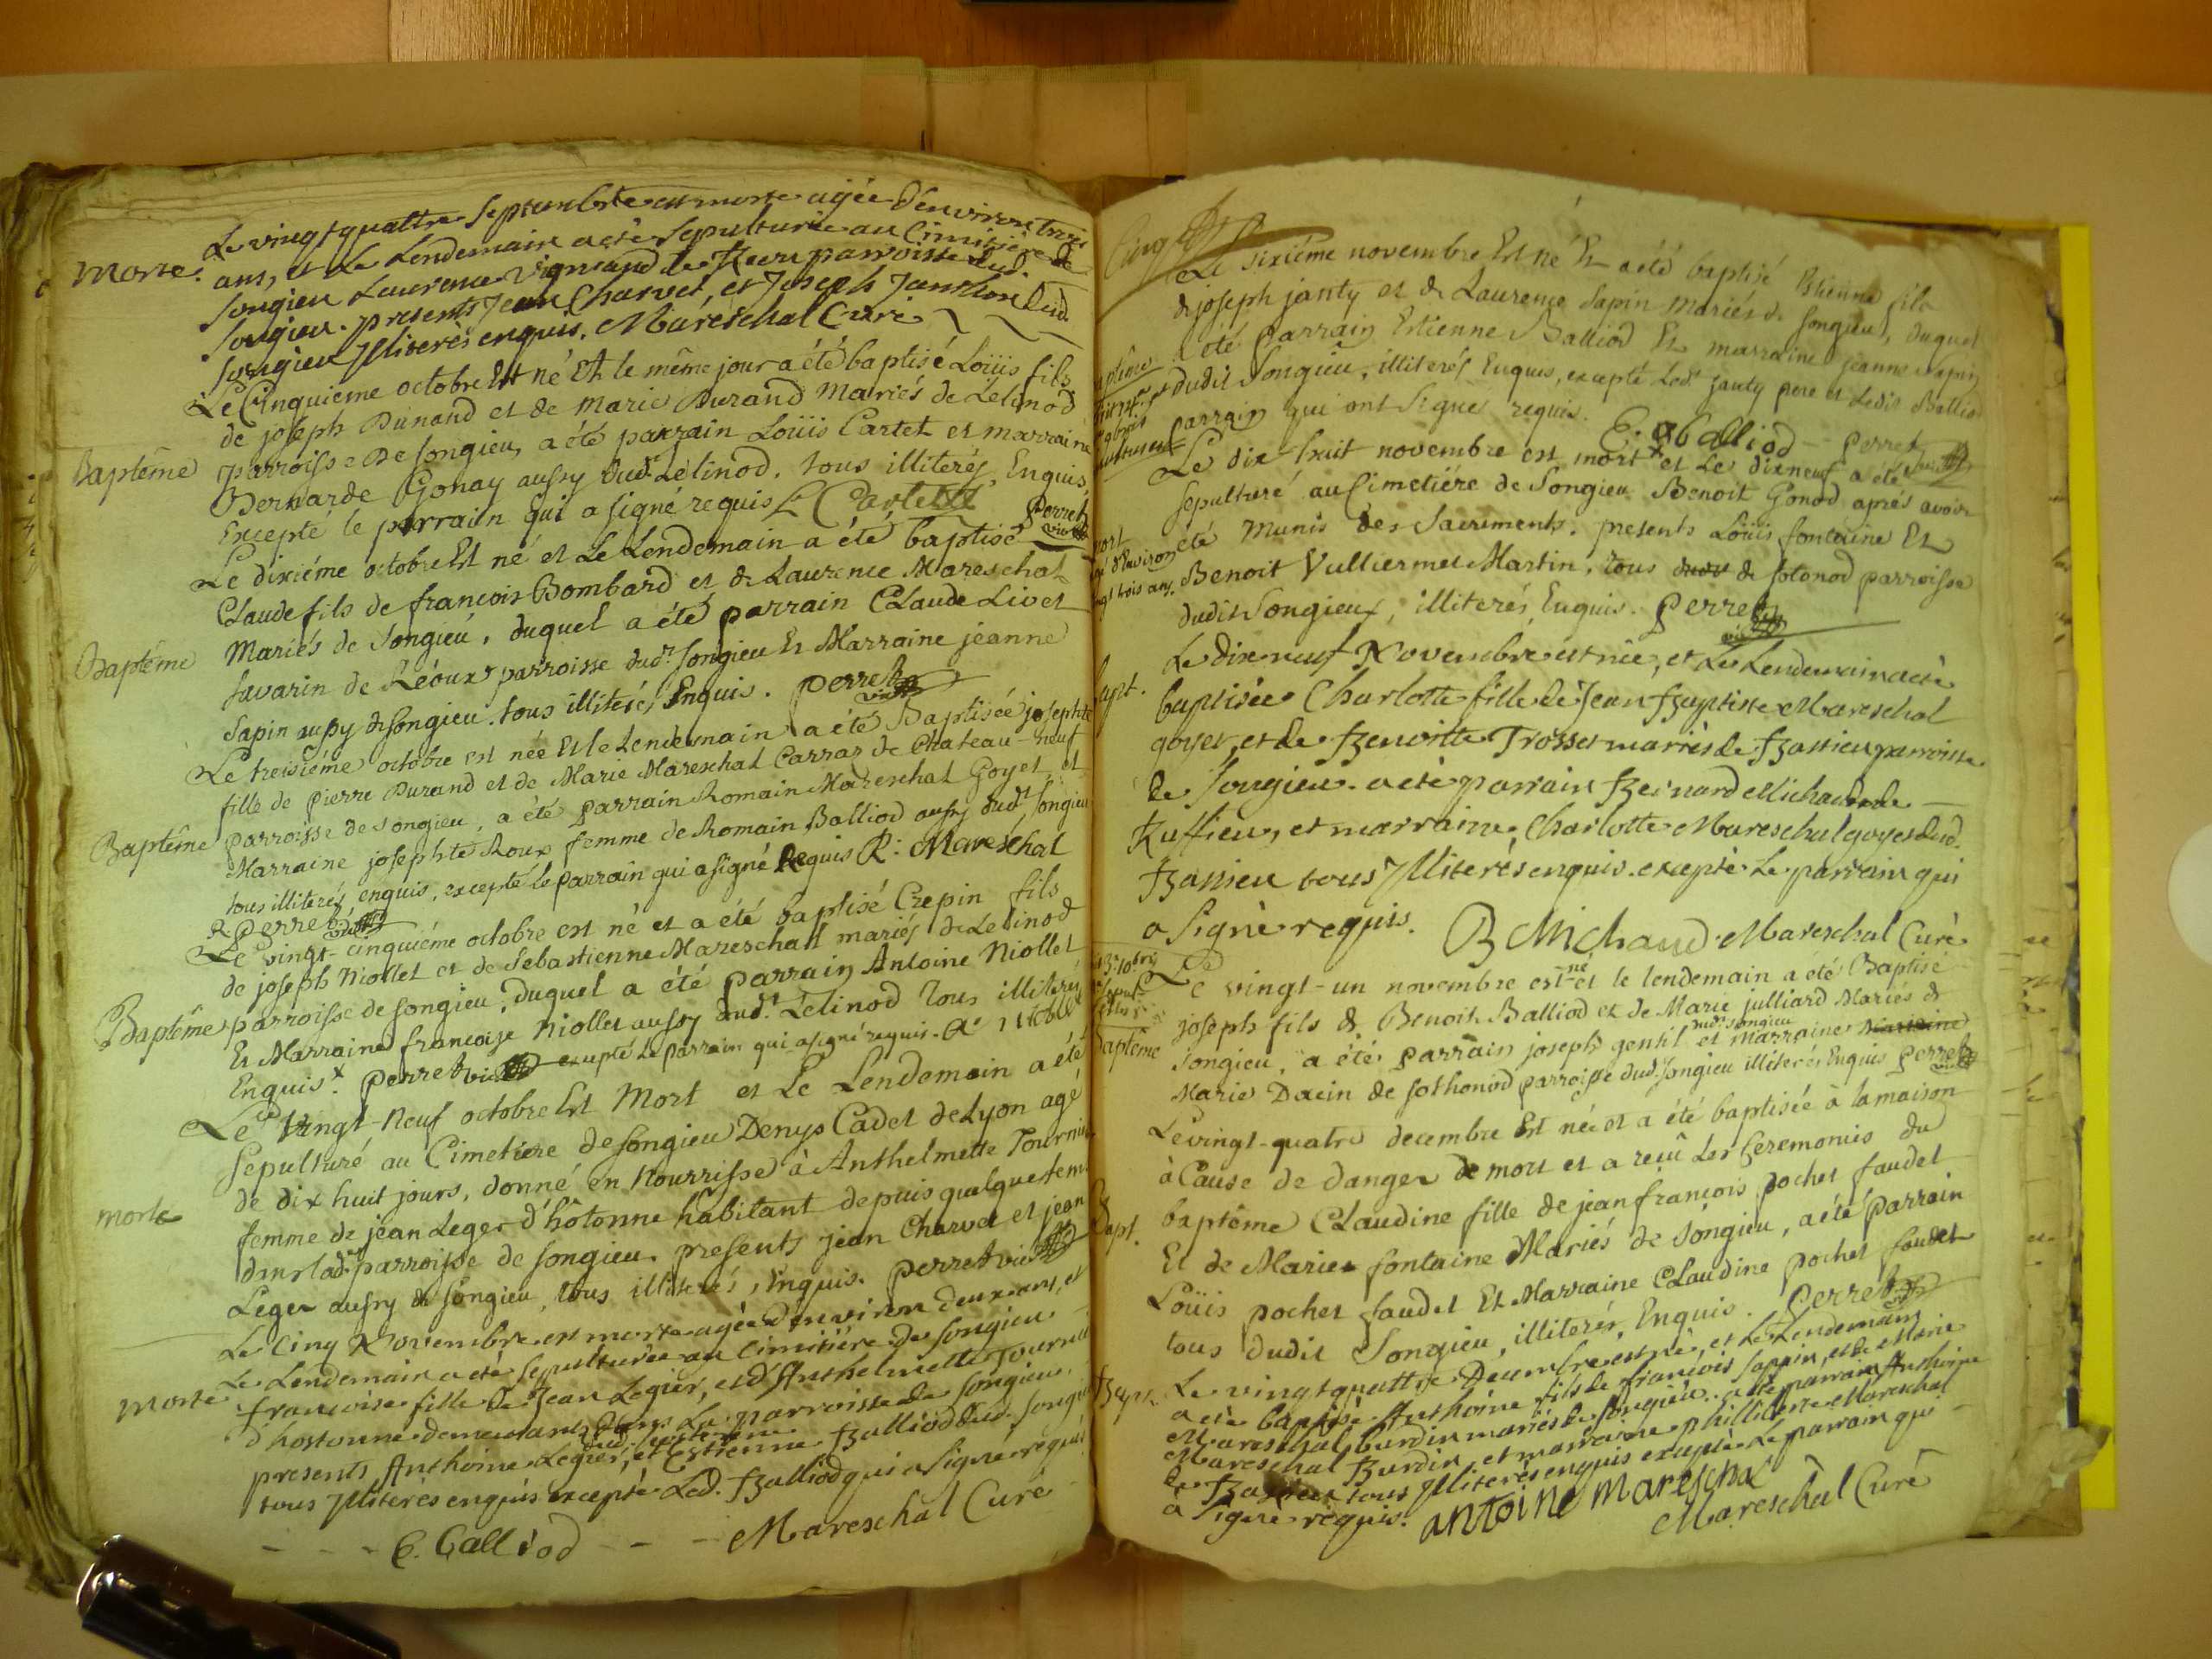 Le vingtquattre septembre est morte agée d'environ trois
morte. ans, et Le Lendemain a eté sepulturée au Cimitière de
songieu Laurence Vignand de parroisse dud.
songieu. presents Jean Charvet, et Joseph Janthon dud.
songieu Illiterés enquis. Mareschal Curé
Le Cinquieme octobre Est né Et le même jour a été baptisé Loüis fils
de joseph Dunand et de Marie Durand Mariés de Lélinod
Baptême parroisse de songieu, a été parrain Loüis Cartet et marraine
Bernarde Gonay aussy dud.t Lélinod. tous illiterés Enquis,
Excepté le parrain qui a signé requis L Cartet Perret
vic
Le dixiéme octobre Est né et Le Lendemain a été baptisé
Claude fils de françois Bombard et de Laurence Mareschal
Baptême Mariés de Songieu, duquel a été parrain Claude Livet
Savarin de Léoux parroisse dud.t songieu Et Marraine jeanne
Sapin aussy de songieu. tous illiterés Enquis. Perret vic
Le treisiéme octobre est née Et le Lendemain a été Baptisée josephte
fille de pierre Durand et de Marie Mareschal Carraz de Chateau-neuf
Baptême parroisse de songieu, a été parrain Romain Mareschal Goyet, et
Marraine josephte Roux femme de Romain Balliod aussy dud.t songieu
tous illiterés, enquis, excepté le parrain qui a signé Requis R: Mareschal
Perret vic
Le vingt-cinquiéme octobre est né et a été baptisé Crepin fils
de joseph Niollet et de Sebastienne Mareschal mariés de Lélinod
Baptême parroisse de songieu; duquel a été parrain Antoine Niollet
Et Marraine françoise Niollet aussy dud.t Lélinod tous illiterés
Enquis x. Perret vic excepté le parrain qui a signé requis. A: niollet
Le Vingt-Neuf octobre Est Mort et Le Lendemain a été
sepulturé au Cimetiere de songieu Denys Cadet de Lyon agé
de dix huit jours, donné en nourrisse à Anthelmette Tournier
morte femme de jean Leger d'hôtonne habitant depuis quelque tems
dans lad.e parroisse de songieu. presents jean Charvet et jean
Leger aussy de songieu, tous illiterés, Enquis. Perret vic
Le Cinq Novembre est morte agée d'environ deux ans, et
Le Lendemain a eté sepulturée au Cimitière de songieu
morte françoise fille de Jean Legier, et d'Anthelmette Tournier
d'hostonne demeurants dans La parroisse de songieu.
presents Anthoine Legier, et Estienne Balliod dud. songieu
tous Illiterés enquis excepté Led. Balliod qui a signé requis
E. Balliod Mareschal Curé
Le sixiéme novembre Est né Et a été baptisé Etienne fils
de joseph janty et de Laurence Sapin Mariés de songieu, duquel
a été parrain Estienne Balliod Et marraine jeanne Sapin
dudit songieu, illiterés Enquis, excepté Led.t janty pere et Ledit Balliod
parrain qui ont signés requis. E: Balliod Perret vic
Le dix huit novembre est mort et Le dixneuf a été
sepulturé au Cimetiére de songieu Benoit Gonod aprés avoir
mort été Munis des sacrements. presents Loüis fontaine Et
agé d'environ
Benoit Vulliermet Martin, tous de sotonod parroisse
dudit songieu, illiterés, Enquis. Perret vic
Bapt. Le dixneuf Novembre est née, et Le Lendemain a eté
baptisée Charlotte fille de Jean Baptiste Mareschal
goyet, et de Benoitte Trosset mariés de Bassieu parroisse
de songieu. a eté parrain Bernard Michaud de
Ruffieu, et marraine Charlotte Mareschal goyet dud.
Bassieu tous Illiterés enquis. excepté Le parrain qui
a signé requis. B Michaud Mareschal Curé
Le vingt-un novembre est né et le lendemain a été Baptisé
Baptême joseph fils de Benoit Balliod et de Marie julliard Mariés de
songieu, a été parrain joseph gentil dud.t songieu et Marraine
Marie Daein de sothonod parroisse dud.t songieu illiterés Enquis Perret vic
Le vingt-quatre decembre Est née et a été baptisée à la maison
à Cause de danger de mort et a reçû Les Ceremonies du
Bapt. baptême Claudine fille de jean françois pochet faudet
Et de Marie fontaine Mariés de songieu, a été parrain
Loüis pochet faudet Et Marraine Claudine pochet faudet
tous dudit Songieu, illiterés, Enquis. Perret vic
Bapt. Le vingtquattre Decembre est né, et Le Lendemain
a eté baptisé Anthoine fils de françois Sappin, et de Marie
Mareschal burdin mariés de songieu. a eté parrain Anthoine
Mareschal Burdin, et marraine philliberte Mareschal
de tous Illiterés enquis excepté Le parrain qui
a signé requis. antoine marescha Mareschal Curé